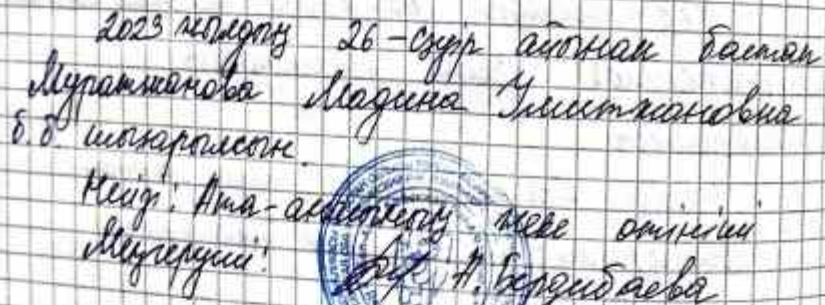 2023 жылдың 26-сәуір айынан бастап
Муратжанова Мадина Умитжановна
б.б. шығарылсын.
Негізі: Ата-анасының жеке өтініші
Меңгеруші: А. Бердибаева